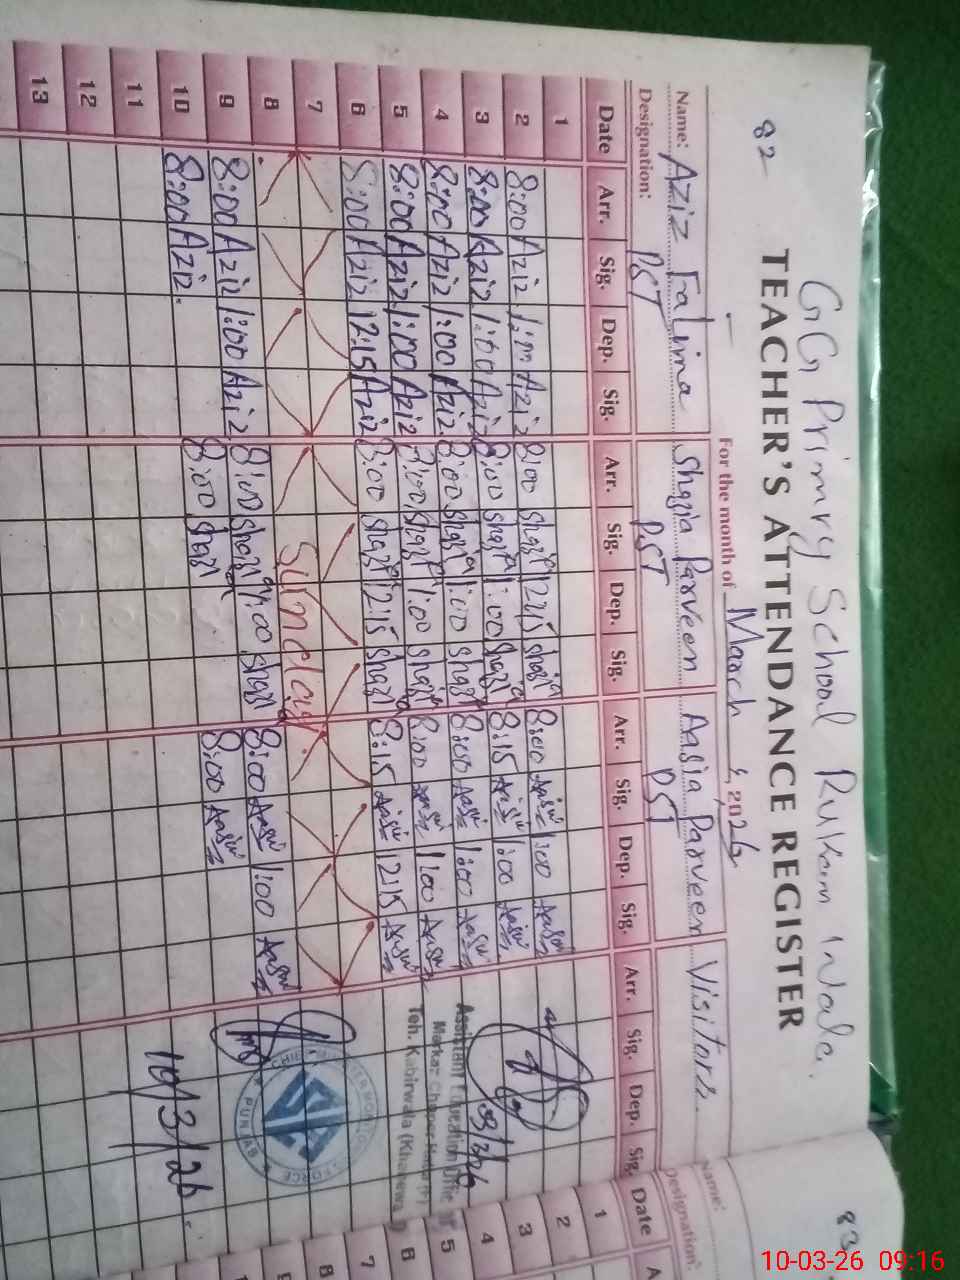 82
GG Primry School Rukan Wala.
TEACHER'S ATTENDANCE REGISTER
For the month of March, 2026
Name: Aziz Fatima Shazia Parveen Aasia Parveen Visitors.
Designation: PST PST PST
Date Arr. Sig. Dep. Sig. Arr. Sig. Dep. Sig. Arr. Sig. Dep. Sig. Arr. Sig. Dep. Sig.
1
2 8:00 Aziz 1:00 Aziz 8:00 Shazia 12:15 Shazia 8:00 Aasia 1:00 Aasia
3 8:00 Aziz 1:00 Aziz 8:00 Shazia 1:00 Shazia 8:15 Aasia 1:00 Aasia
4 8:00 Aziz 1:00 Aziz 8:00 Shazia 1:00 Shazia 8:00 Aasia 1:00 Aasia
5 8:00 Aziz 1:00 Aziz 8:00 Shazia 1:00 Shazia 8:00 Aasia 1:00 Aasia
6 8:00 Aziz 12:15 Aziz 8:00 Shazia 12:15 Shazia 8:15 Aasia 12:15 Aasia
7
8 Sunday
9 8:00 Aziz 1:00 Aziz 8:00 Shazia 1:00 Shazia 8:00 Aasia 1:00 Aasia
10 8:00 Aziz. 8:00 Shazia 8:00 Aasia
11
12
13
Assistant Education Officer
Markaz
Teh. Kabirwala
CHIEF MINISTER MONITORING FORCE
PUNJAB
10/3/26.
83
Name:
Designation:
Date A
1
2
3
4
5
6
7
8
10-03-26 09:16